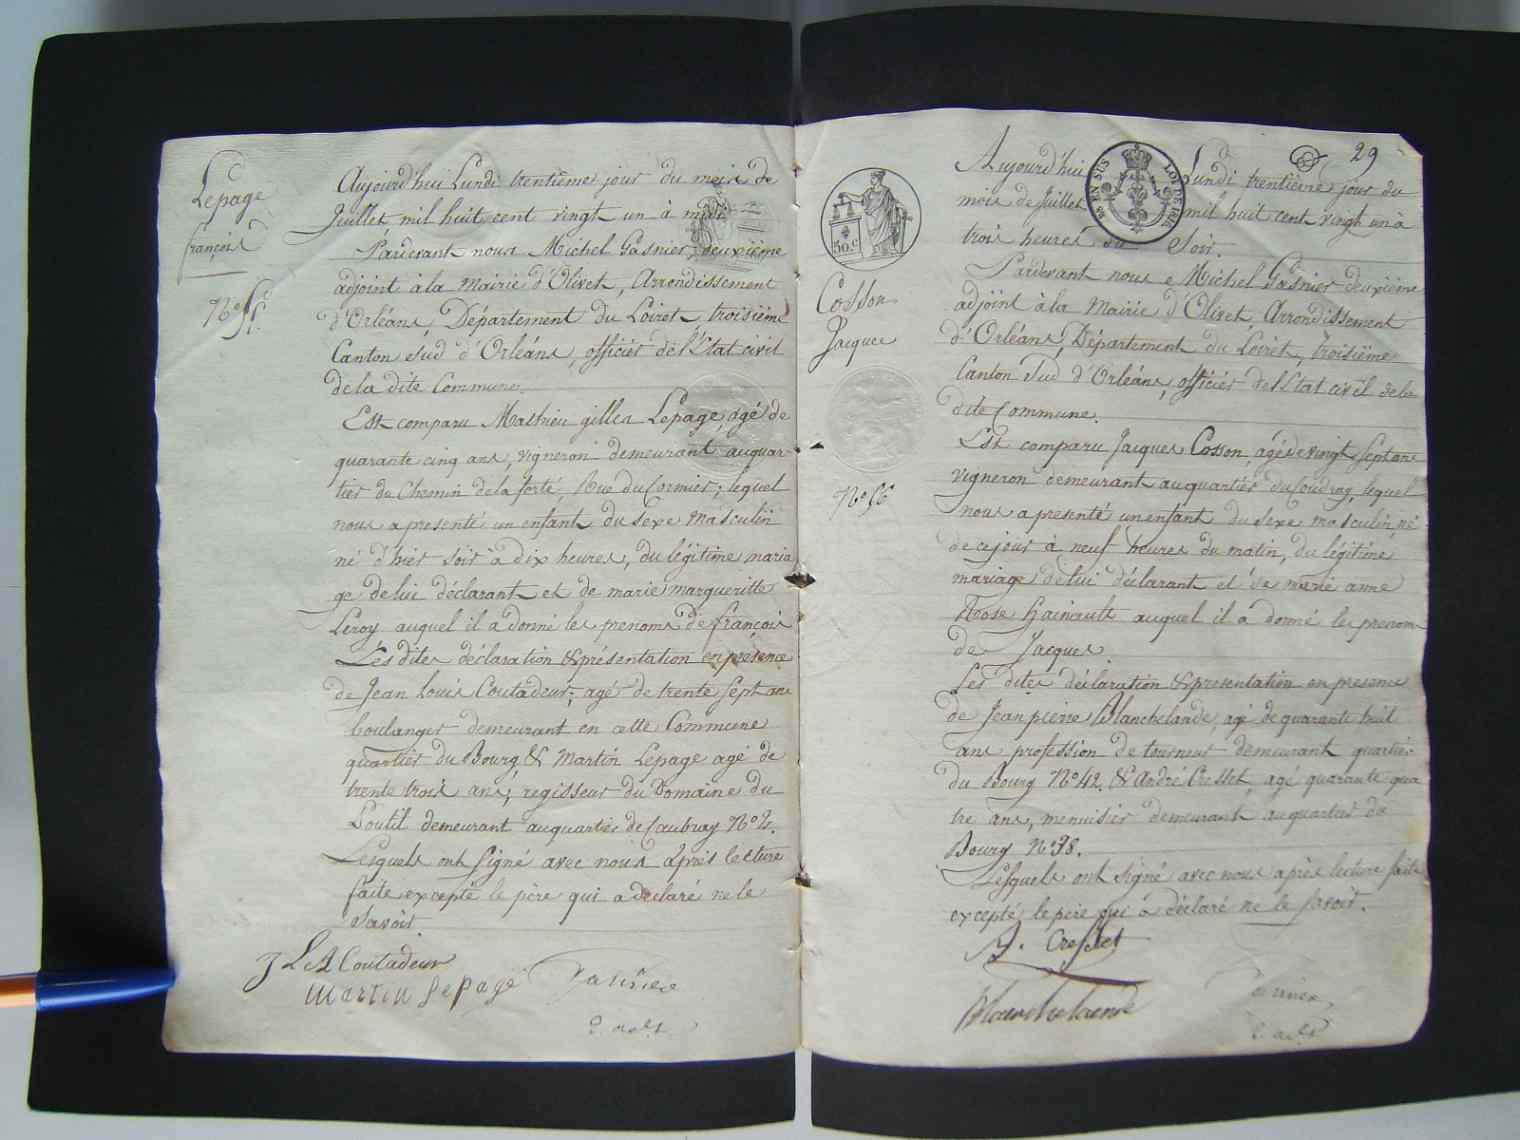 Lepage
françois
N° 55.
Aujourd'hui Lundi trentième jour du mois de
Juillet mil huit cent vingt un à midi
Pardevant nous Michel Gasnier, deuxième
adjoint à la Mairie d'Olivet, Arrondissement
d'Orléans, Département du Loiret, troisième
Canton Sud d'Orléans, officier de l'Etat civil
de la dite Commune.
Est comparu Mathieu gilles Lepage, agé de
quarante cinq ans, vigneron demeurant au quar-
tier du Chemin de la ferté, Rue du Cormier; lequel
nous a presenté un enfant du sexe Masculin
né d'hier soir à dix heures, du légitime maria
ge de lui déclarant et de marie margueritte
Leroy auquel il a donné les prenoms de françois
Les dites déclaration & présentation en présence
de Jean Louis Coutadeur; agé de trente sept ans
boulanger demeurant en cette Commune
quartier du Bourg & Martin Lepage agé de
trente trois ans, regisseur du Domaine du
Poutil demeurant au quartier de Caubray N° 2.
Lesquels ont signé avec nous après lecture
faite excepté le père qui a declaré ne le
Savoir.
J L A Coutadeur
Martin Lepage
Gasnier
2. adt
29
Aujourd'hui Lundi trentième jour du
mois de Juillet mil huit cent vingt un à
trois heures du Soir.
EN SUS
LOI DE 1816
50.c
Cosson
Jacques
N° 56
Pardevant nous Michel Gasnier deuxième
adjoint à la Mairie d'Olivet Arrondissement
d'Orléans, Département du Loiret, troisième
Canton Sud d'Orléans, officier de l'Etat civil de la
dite Commune.
Est comparu Jacques Cosson, agé de vingt sept ans
vigneron demeurant au quartier du Coudray, lequel
nous a presenté un enfant du sexe masculin, né
de ce jour à neuf heures du matin, du légitime
mariage de lui déclarant et de marie anne
Rose Hainault auquel il a donné les prenoms
de Jacques.
Les dites déclaration & presentation en presence
de Jean pierre Blanchelande, agé de quarante huit
ans profession de tourneur demeurant quartier
du Bourg N° 42. & André Cresset, agé quarante qua
tre ans, menuisier demeurant au quartier du
Bourg N° 38.
Lesquels ont signé avec nous après lecture faite
excepté le père qui a déclaré ne le savoir.
A. Cresset
Blanchelande
Gasnier
2. adt